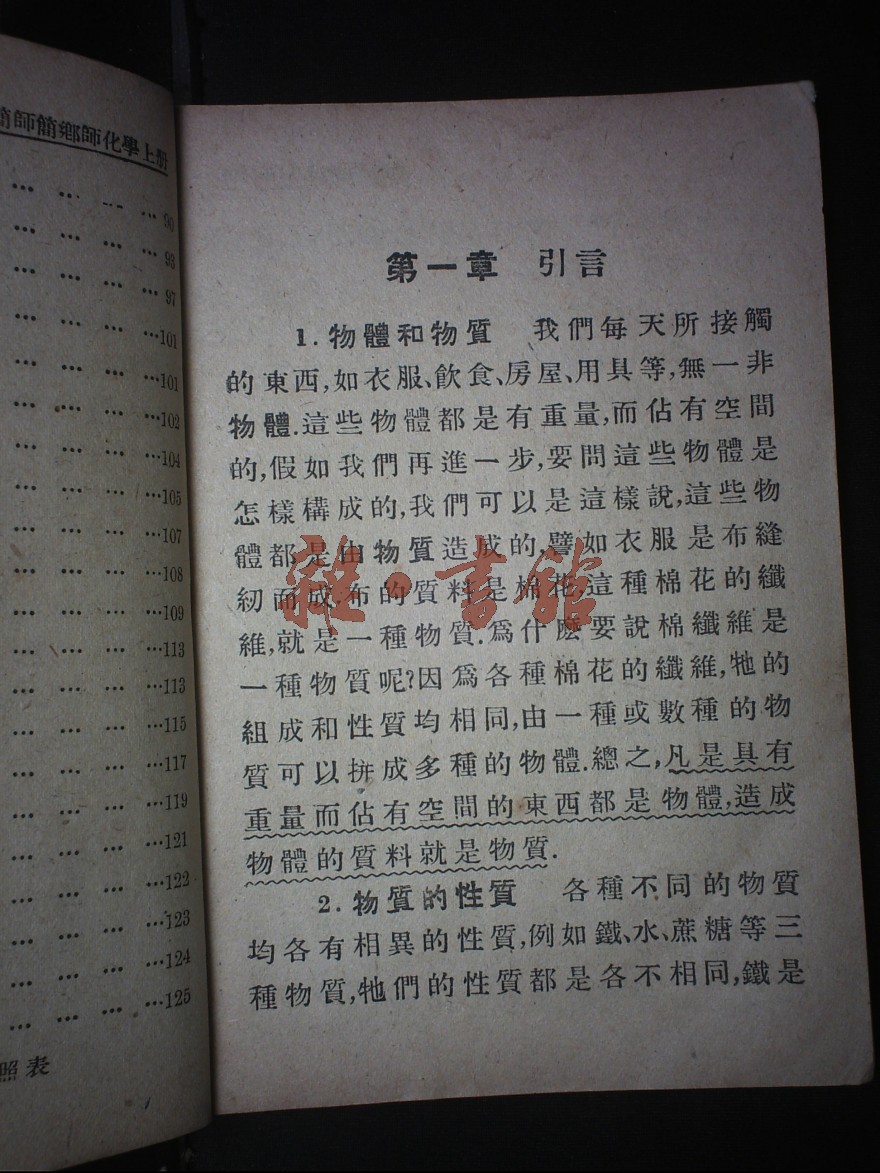 簡師簡鄉師化學上册
… … … …90
… … … …93
… … … …97
… … … …101
… … … …101
… … … …102
… … … …104
… … … …105
… … … …107
… … … …108
… … … …109
… … … …113
… … … …113
… … … …115
… … … …117
… … … …119
… … … …121
… … … …122
… … … …123
… … … …124
… … … …125
照表
第一章 引言
1. 物體和物質 我們每天所接觸
的東西,如衣服、飲食、房屋、用具等,無一非
物體.這些物體都是有重量,而佔有空間
的,假如我們再進一步,要問這些物體是
怎樣構成的,我們可以是這樣說,這些物
體都是由物質造成的,譬如衣服是布縫
紉而成.布的質料是棉花,這種棉花的纖
維,就是一種物質.爲什麽要說棉纖維是
一種物質呢?因爲各種棉花的纖維,牠的
組成和性質均相同,由一種或數種的物
質可以拚成多種的物體.總之,凡是具有
重量而佔有空間的東西都是物體,造成
物體的質料就是物質.
2. 物質的性質 各種不同的物質
均各有相異的性質,例如鐵、水、蔗糖等三
種物質,牠們的性質都是各不相同,鐵是
雜·書館